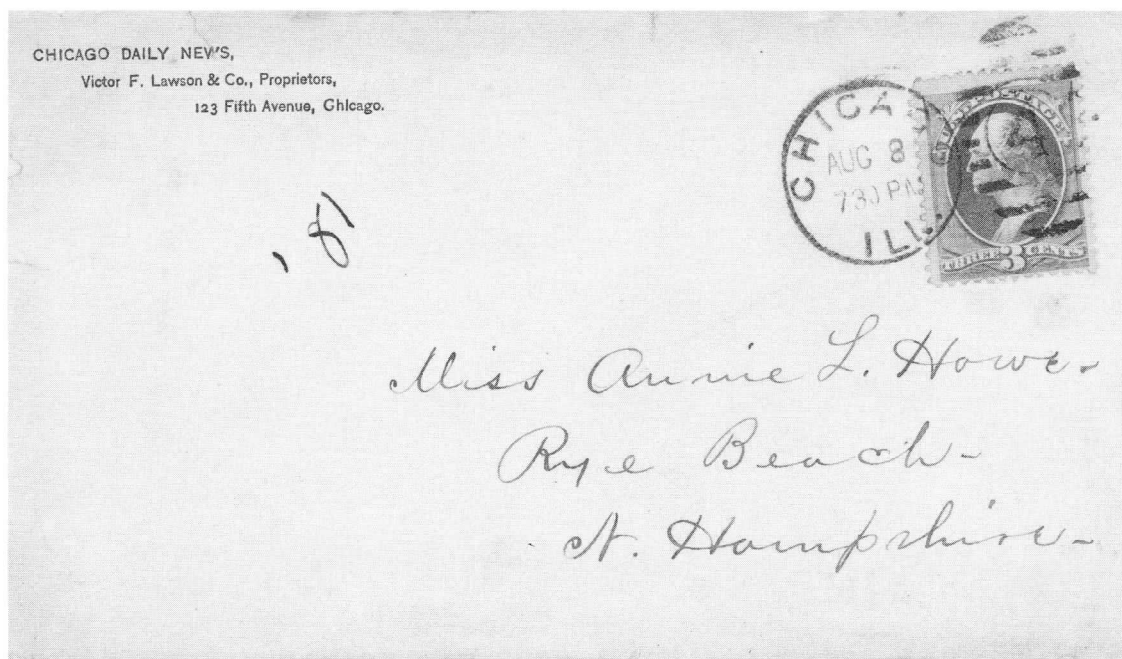 CHICAGO DAILY NEWS,
Victor F. Lawson & Co., Proprietors,
123 Fifth Avenue, Chicago.
CHICA
AUG 8
730 PM
ILL.
THREE 3 CENTS
'81
Miss Annie L. Howe.
Rye Beach-
N. Hampshire-